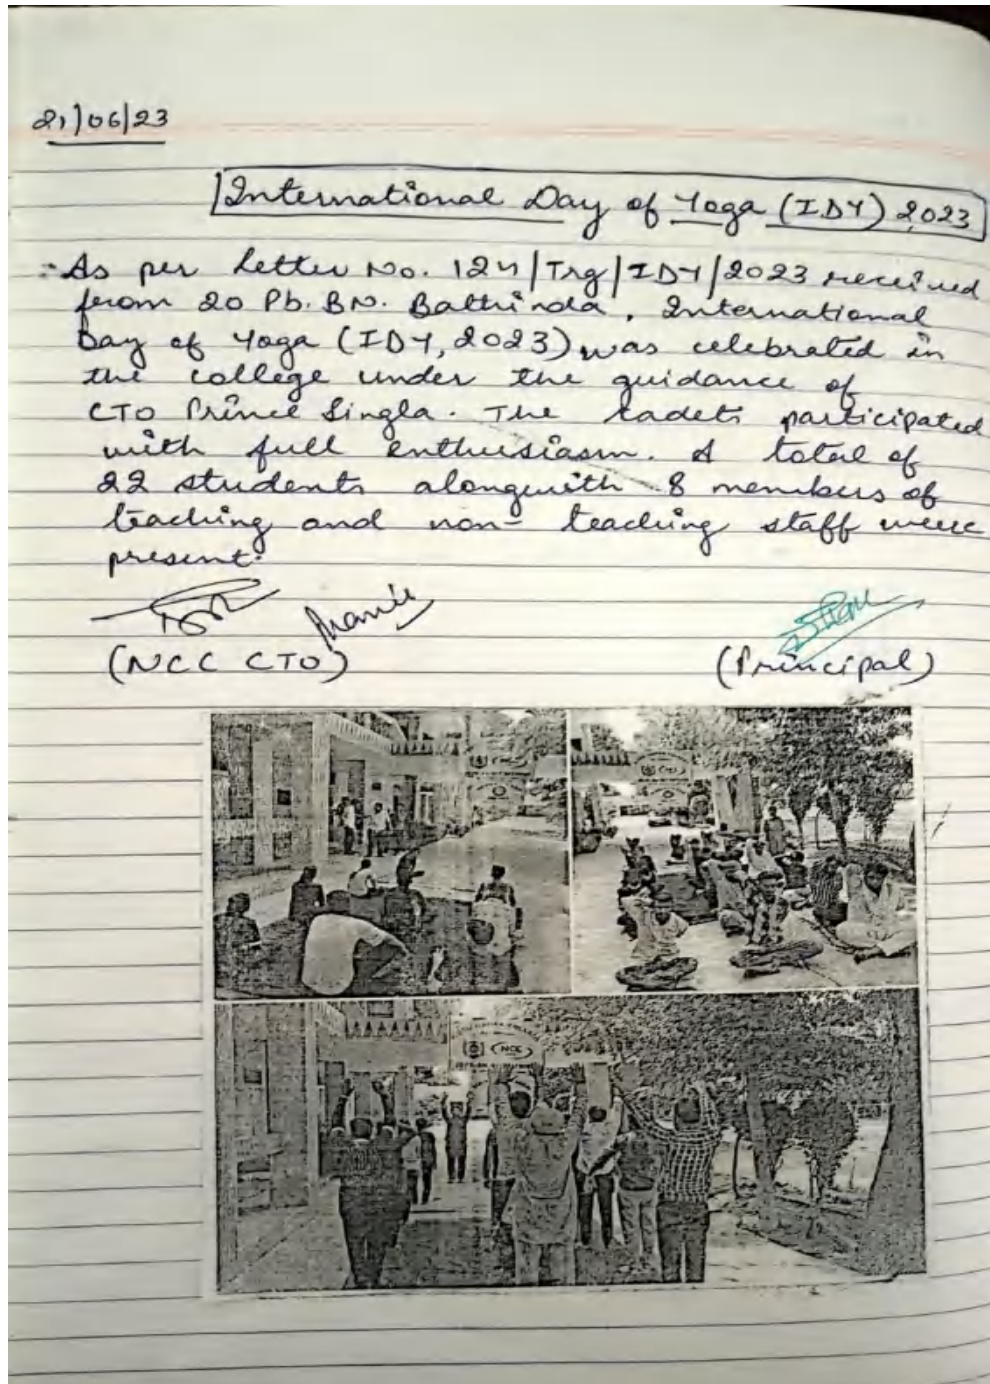 21/06/23
International Day of Yoga (IDY) 2023
As per Letter No. 124/Trg/IDY/2023 received
from 20 Pb. BN. Bathinda, International
Day of Yoga (IDY, 2023) was celebrated in
the college under the guidance of
CTO Prince Singla. The Cadets participated
with full enthusiasm. A total of
22 students alongwith 8 members of
teaching and non-teaching staff were
present.
(NCC CTO)
(Principal)
NCC